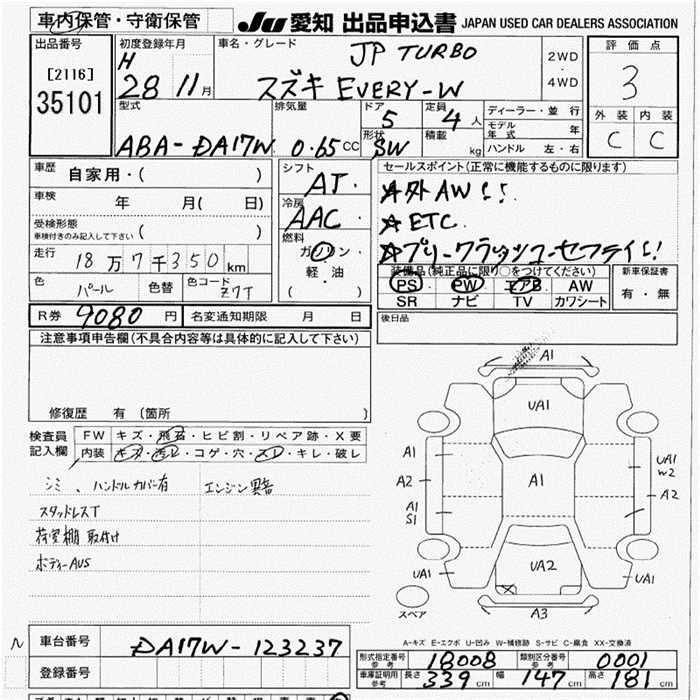 車内保管・守衛保管
JU 愛知 出品申込書 JAPAN USED CAR DEALERS ASSOCIATION
出品番号
[2116]
35101
初度登録年月
H
28 11月
車名・グレード
JP TURBO
スズキ EVERY-W
2WD
・
4WD
評価点
3
外装 内装
C C
型式
ABA-DA17W
排気量
0.65 CC
ドア
5
形状
SW
定員
4人
積載
kg
ディーラー・並行
モデル年式 年
ハンドル 左・右
車歴
自家用・( )
車検
年 月( 日)
受検形態
車検付きのみ記入して下さい ( )
走行
18万7千350km
色
パール
色替
色コード
Z7T
シフト
AT
冷房
AAC
燃料
ガソリン
・
軽油
( )
セールスポイント(正常に機能するものに限ります)
☆外AW!!
☆ETC
装備品(純正品に限り○をつけてください)
PS PW エアB AW
SR ナビ TV カワシート
新車保証書
有・無
R券 9080円 名変通知期限 月 日
後日品
注意事項申告欄(不具合内容等は具体的に記入して下さい)
修復歴 有 (箇所 )
検査員
記入欄
FW キズ・飛石・ヒビ割・リペア跡・X要
内装 キズ・汚レ・コゲ・穴・スレ・キレ・破レ
シミ、ハンドルカバー有 エンジン異音
スタッドレスT
荷室棚 取付け
ボディーAUS
A1
UA1
A1
A1
A2
A1
S1
UA1
W2
A2
UA2
UA1
UA1
A3
スペア
A-キズ E-エクボ U-凹み W-補修跡 S-サビ C-腐食 XX-交換済
車台番号 DA17W-123237
登録番号
形式指定番号
参考
18008
類別区分番号
参考
0001
車庫証明用
参考
長さ 339cm 幅 147cm 高さ 181cm